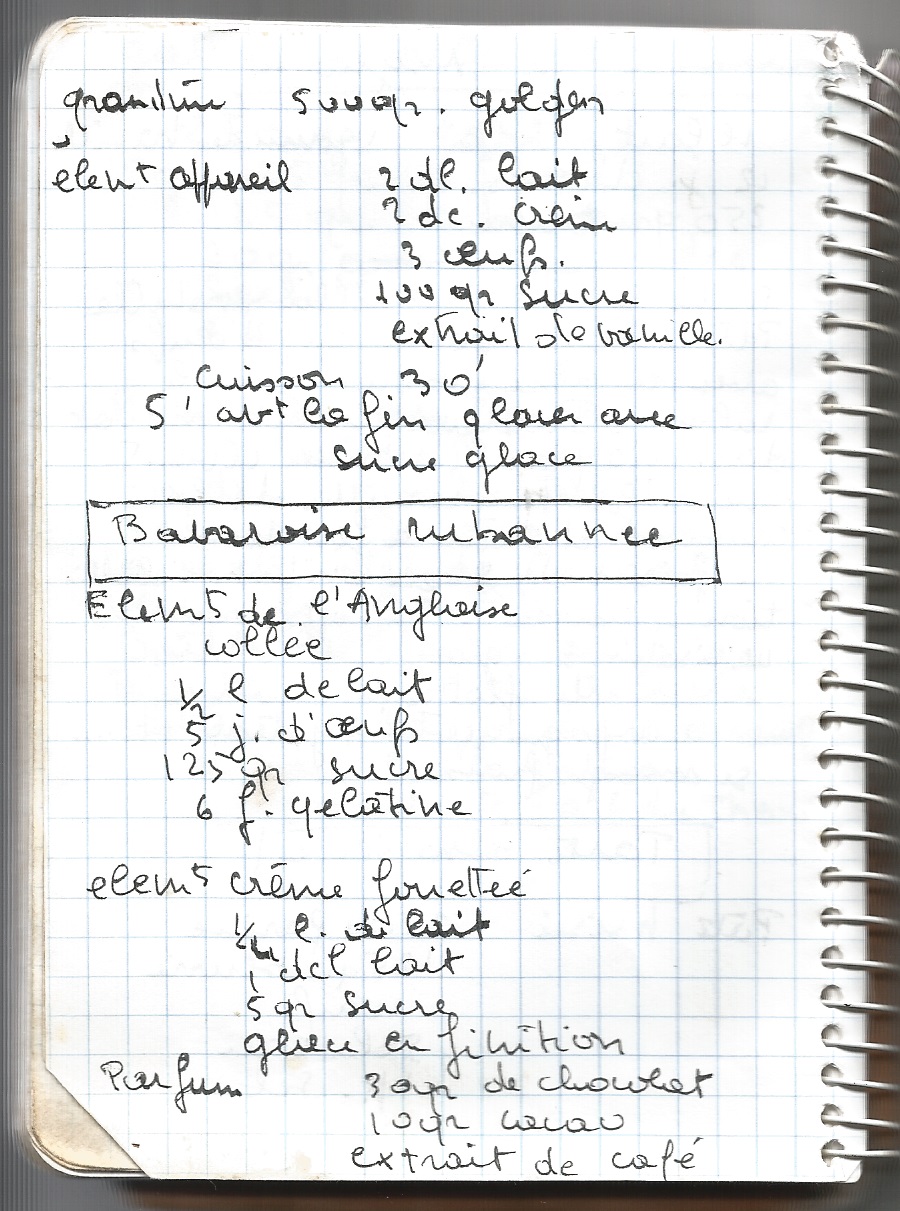 garniture 500 gr. golden
élemt appareil 2 dl. lait
2 dc. crème
3 œufs.
100 gr sucre
extrait de vanille.
Cuisson 30'
5' avt la fin glacer avec
sucre glace
Bavaroise rubannee
Elemts de l'Anglaise
collée
1/2 l de lait
5 j. d'œufs
125 gr sucre
6 f. gelatine
elemts crème fouettée
1/4 l. de lait
1 dcl lait
5 gr sucre
glace en finition
Parfum 30 gr de chocolat
10 gr cacao
extrait de café